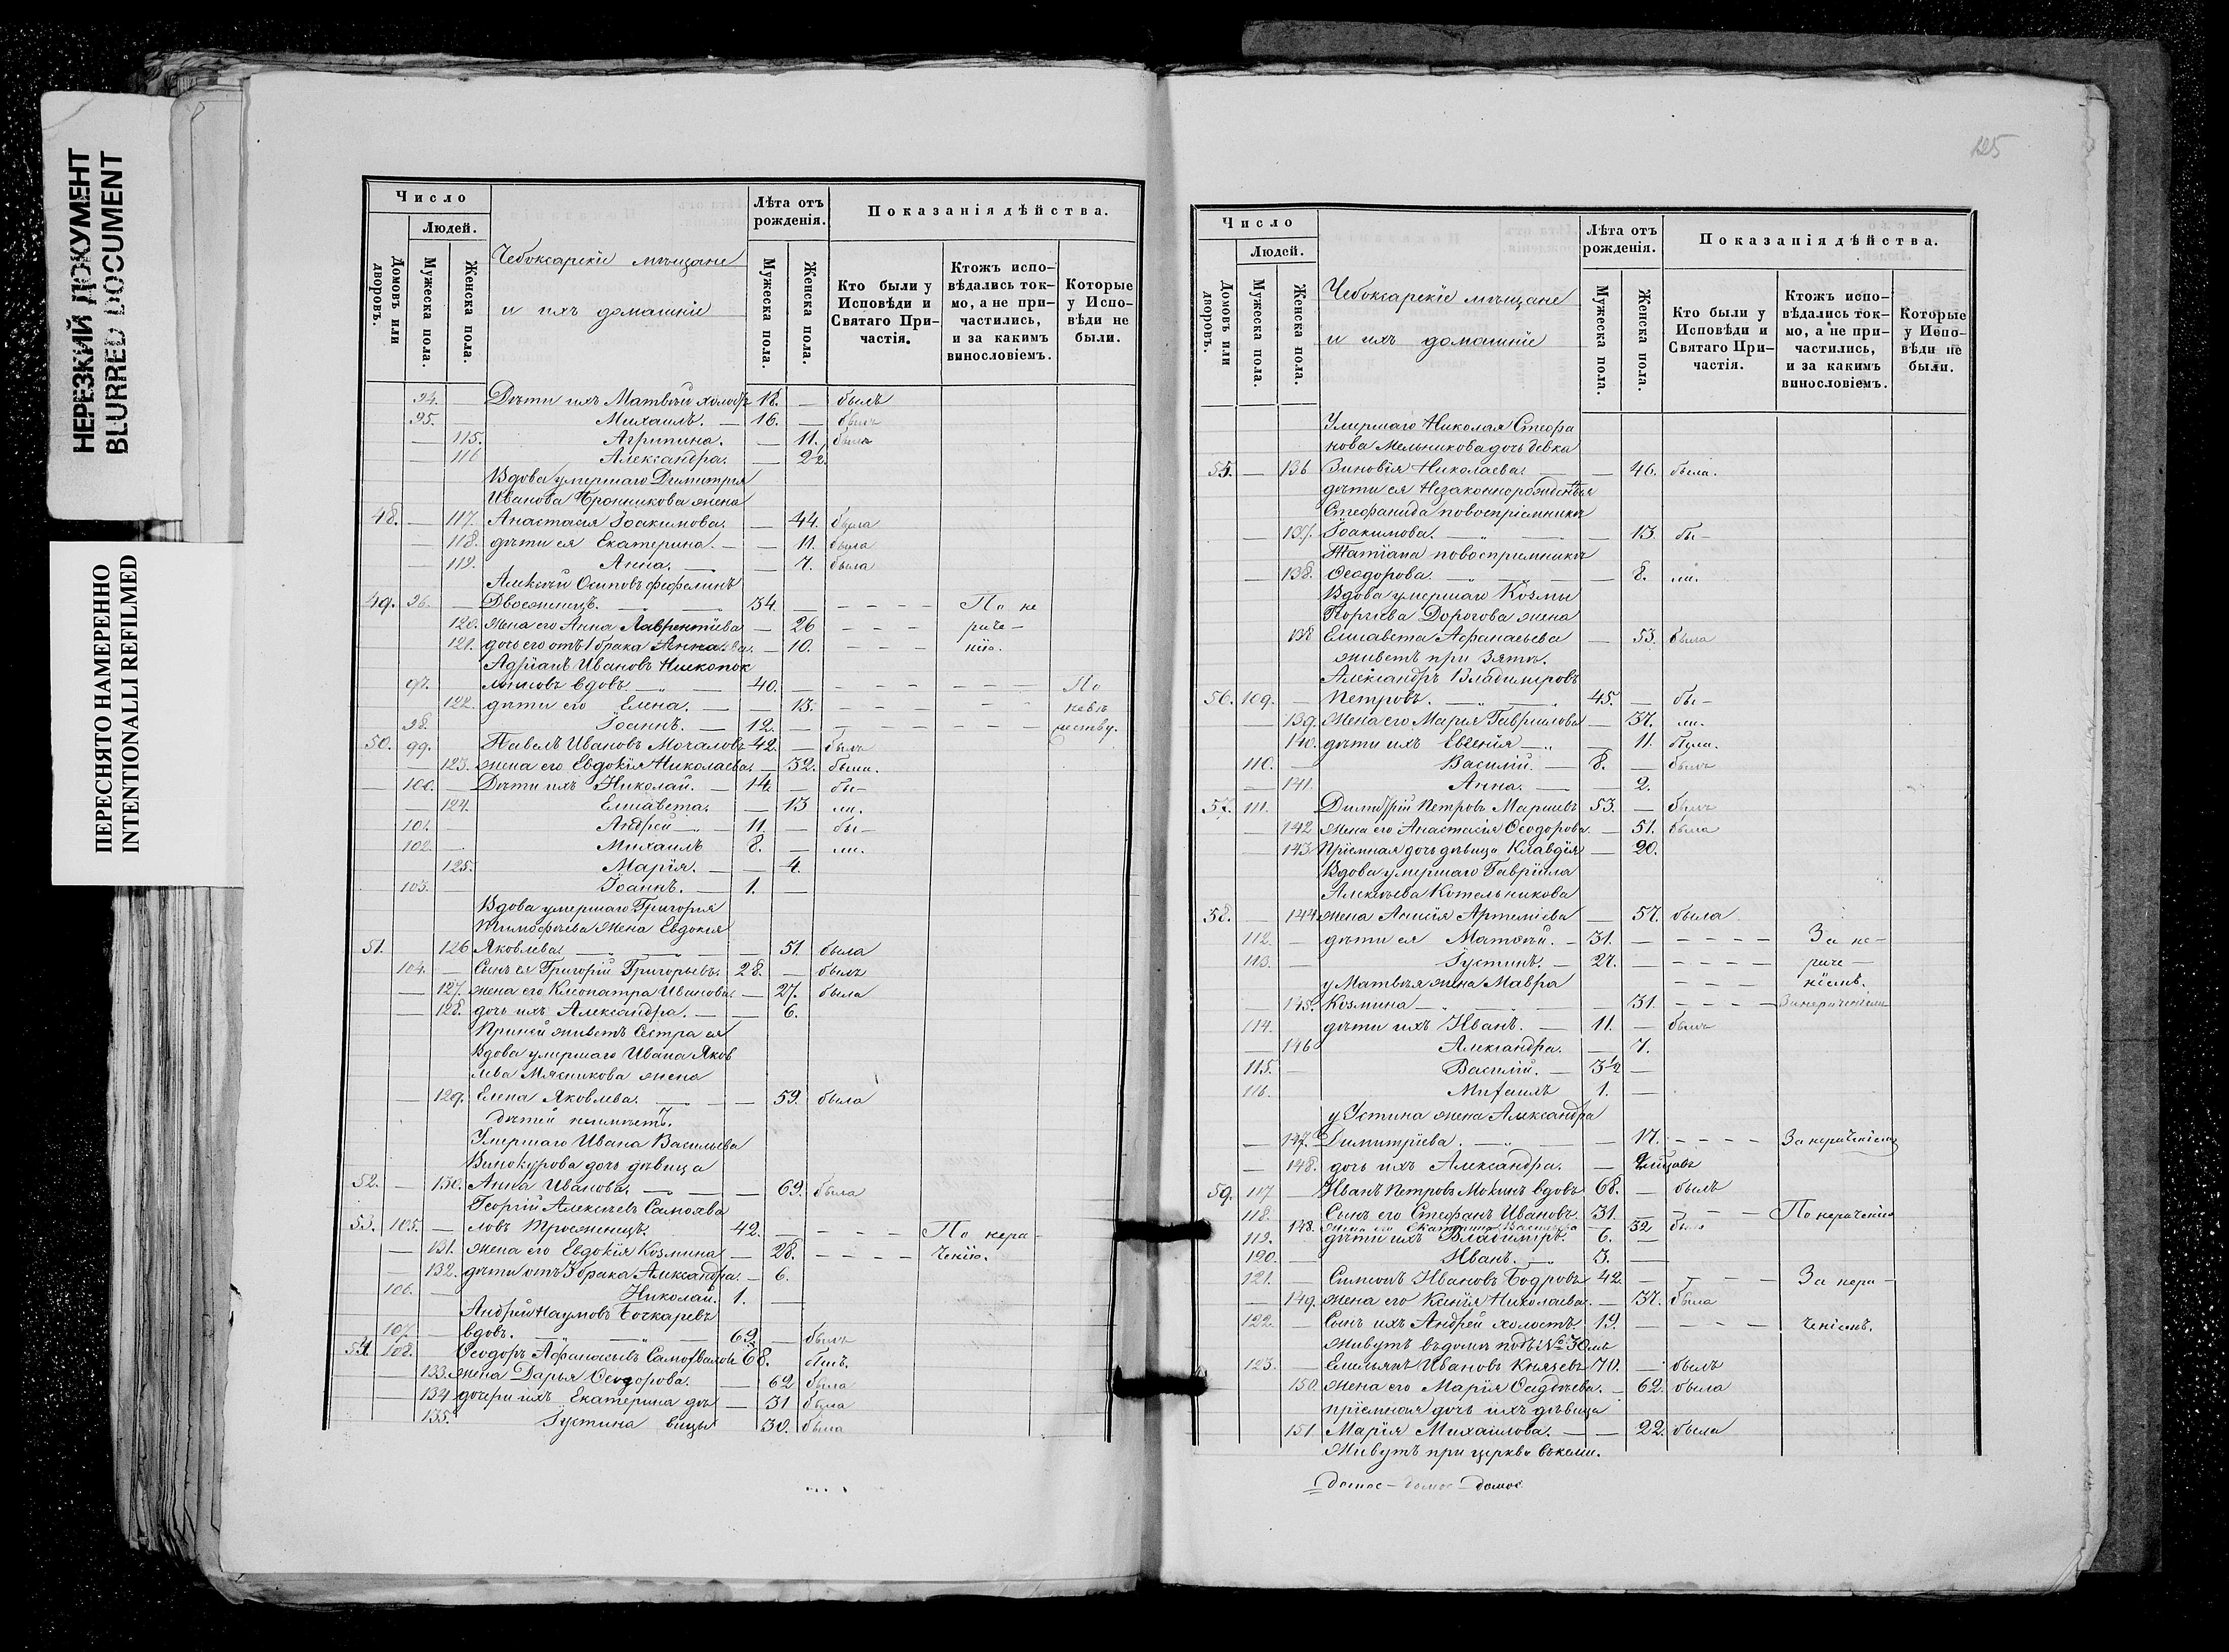 НЕРЕЗКИЙ ДОКУМЕНТ
BLURRED DOCUMENT
ПЕРЕСНЯТО НАМЕРЕННО
INTENTIONALLI REFILMED
Число
Людей.
Домовъ или дворовъ.
Мужеска пола.
Женска пола.
Чебоксарскіе мѣщане
и ихъ домашніе
Лѣта отъ рожденія.
Мужеска пола.
Женска пола.
Показанія дѣйства.
Кто были у Исповѣди и Святаго При-частія.
Ктожъ испо-вѣдались ток-мо, а не при-частились, и за какимъ винословіемъ.
Которые у Испо-вѣди не были.
94. Дѣти ихъ Матвѣй холостъ 18. — былъ
95. — Михаилъ. — 16. — былъ
— 115. Агрипина. — 11. была
— 116 Александра. — 2½.
Вдова умершаго Димитрія
Иванова Бронникова жена
48. — 117. Анастасія Іоакимова. — 44. была
— 118. дѣти ея Екатерина. — 11. была
— 119. Анна. — 7. была
Алексѣй Осиповъ
49. 96. — Двоеженецъ. 34. — По не
120. жена его Анна Лаврентіева — 26 — раче-
121. дочь его отъ 1 брака — 10. — нію.
Адріанъ Ивановъ
97. вдовъ 40. — По
122. дѣти его Елена. — 13.
98. Іоаннъ. — 12.
50. 99. Павелъ Ивановъ Мочаловъ 42. — былъ
— 123. жена его Евдокія Николаева. — 32. была.
— 100. — Дѣти ихъ Николай. — 14. — бы-
— 124. Елисавета. — 13 ли.
101. — Андрей — 11. — бы-
102. — Михаилъ 8. — ли.
125. Марія. — 4.
103. — Іоаннъ. — 1. —
Вдова умершаго Григорія
Тимофѣева жена Евдокия
51. 126 Яковлева. — 51. была
104. — Сынъ ея Григорій Григорьевъ. 28. — былъ
— 127. жена его Клеопатра Иванова. — 27. была
— 128. дочь ихъ Александра. — 6.
При ней живетъ Сестра ея
Вдова умершаго Ивана Яков
лева Мясникова жена
— 129. Елена Яковлева. — 59. была
дѣтей неимѣетъ.
Умершаго Ивана Васильева
Винокурова дочь дѣвица
52. — 130. Анна Иванова. — 69. была
Георгій Алексѣевъ Самохва
53. 105. — ловъ Троеженецъ. 42. — По нера-
— 131. жена его Евдокія Козмина — 28. — ченію.
— 132. дѣти отъ 3 брака Александра. — 6.
106. — Николай. 1. —
Андрей Наумовъ Бочкаревъ
107. — вдовъ. 69. — былъ
54. 108. Ѳеодоръ Афанасьевъ Самохваловъ 68. былъ.
133. жена Дарья Ѳеодорова. — 62 была
134 дочери ихъ Екатерина дѣ — 31 была
135. Іустина вицы 30. была
125
Число
Людей.
Домовъ или дворовъ.
Мужеска пола.
Женска пола.
Чебоксарскіе мѣщане
и ихъ домашніе
Лѣта отъ рожденія.
Мужеска пола.
Женска пола.
Показанія дѣйства.
Кто были у Исповѣди и Святаго При-частія.
Ктожъ испо-вѣдались ток-мо, а не при-частились, и за какимъ винословіемъ.
Которые у Испо-вѣди не были.
Умершаго Николая Стефа
нова Мельникова дочь девка
55. — 136 Зиновія Николаева. — 46. была.
дѣти ея Незаконнорожденныя
Стефанида по воспріемникѣ
— 137. Іоакимова. — 13. бы-
Татіана по воспріемникѣ
— 138. Ѳеодорова. — 8. ли.
Вдова умершаго Козмы
Дорогова жена
138 Елисавета Афанасьева — 53. была
живетъ при Зятѣ.
Александръ Владиміровъ
56. 109. — Петровъ. 45. — бы-
139. жена его Марія Гавриилова — 37. ли.
140. дѣти ихъ Евгенія — 11. была.
110. — Василій. — 8. — былъ
— 141. Анна. — 2.
57. 111. Димитрій Петровъ 53. — былъ
— 142. жена его Анастасія Ѳеодорова. — 51. была
— 143 Пріемная дочь дѣвица Клавдія — 20.
Вдова умершаго Гавріила
Алексѣева Котельникова
58. — 144. жена Анисія Артеміева — 57. была
112. — дѣти ея Матвѣй. — 31. — За не-
113. — Іустинъ. — 27. — раче-
у Матвѣя жена Мавра — ніемъ.
— 145. Козмина — 31. — За нераченіемъ
114. дѣти ихъ Иванъ. — 11. — былъ
— 146 Александра. — 7.
115. — Василій. — 3½ —
116. Михаилъ 1. —
у Устина жена Александра
— 147. Димитріева. — 17. — За нераченіемъ
— 148. дочь ихъ Александра. —
59. 117. — Иванъ Петровъ Мокинъ вдовъ 68. — былъ
118. Сынъ его Стефанъ Ивановъ. 31. — По нераченію
148. жена его Екатерина Васильева — 32 была
119. дѣти ихъ Владиміръ. 6. —
120. — Иванъ. 3. —
121. — Симеонъ Ивановъ Бодровъ 42. — За нера-
— 149. жена его Ксенія Николаева. — 37. была
122. — Сынъ ихъ Андрей холостъ. 19. — ченіемъ.
живутъ въ домѣ подъ № 30мъ
123. — Емельянъ Ивановъ Князевъ 70. — былъ
150. жена его Марія — 62. была
пріемная дочь ихъ дѣвица
151. Марія Михаилова. — 22. была
Живутъ при церкви